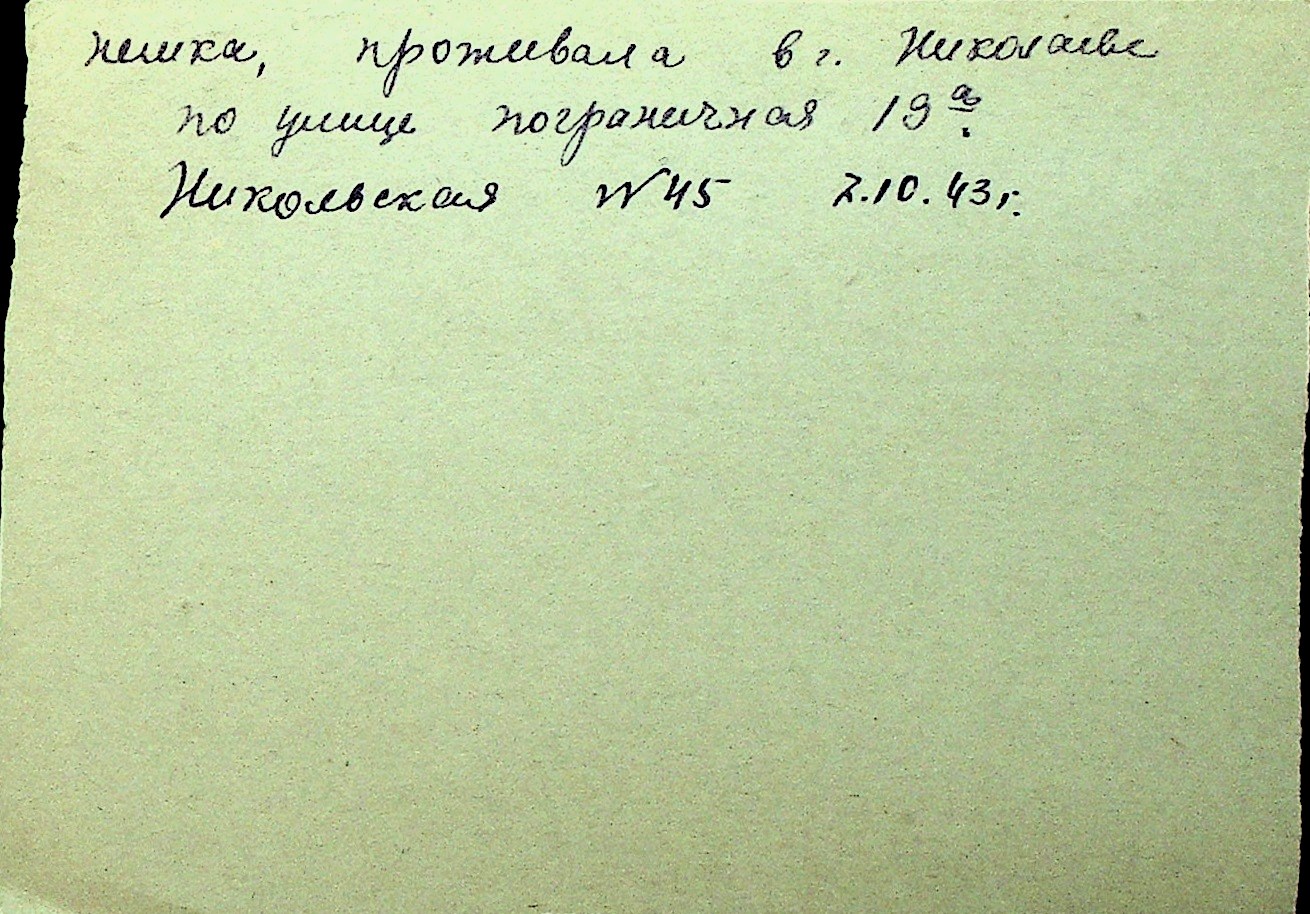 немка, проживала в г. Николаеве
по улице пограничная 19 а.
Никольская №45 2.10.43 г.